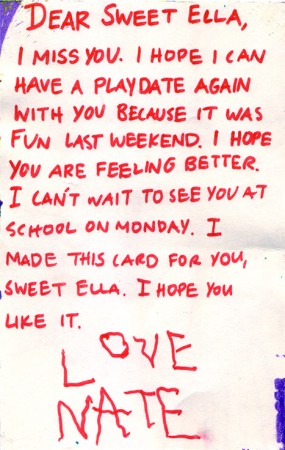 DEAR SWEET ELLA,
I MISS YOU. I HOPE I CAN
HAVE A PLAYDATE AGAIN
WITH YOU BECAUSE IT WAS
FUN LAST WEEKEND. I HOPE
YOU ARE FEELING BETTER.
I CAN'T WAIT TO SEE YOU AT
SCHOOL ON MONDAY. I
MADE THIS CARD FOR YOU,
SWEET ELLA. I HOPE YOU
LIKE IT.
LOVE
NATE